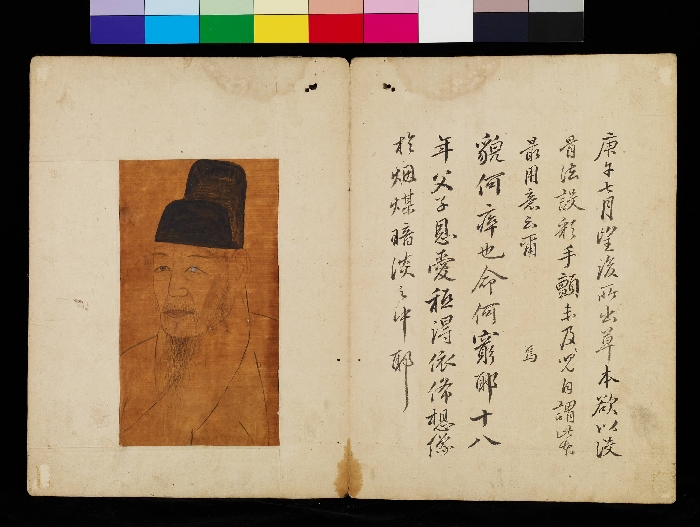 庚午七月望後所出草本欲以沒
骨法設彩手顫未及自謂此
最用意云爾
爲
貌何瘁也命何窮耶十八
年父子恩愛秪得依俙想像
於烟煤暗淡之中耶